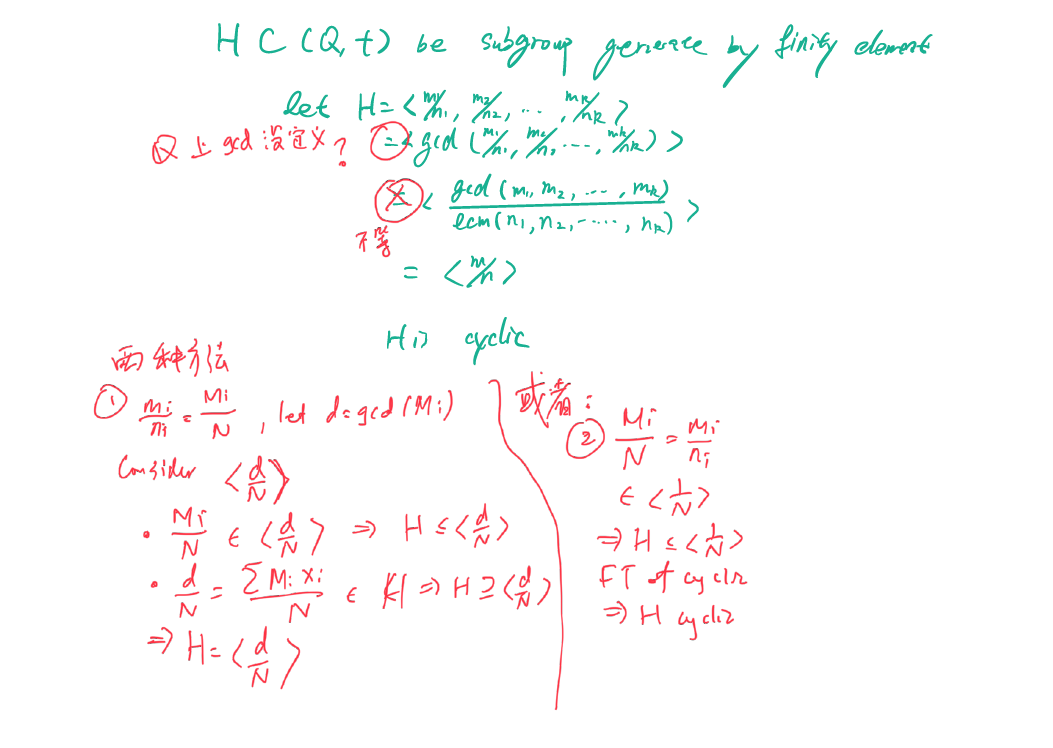 H ⊂ (Q, +) be subgroup generate by finity element
let H = < m₁/n₁, m₂/n₂, ..., mₖ/nₖ >
Q 上 gcd 没定义? = < gcd (m₁/n₁, m₂/n₂, ..., mₖ/nₖ) >
= < gcd (m₁, m₂, ..., mₖ) / lcm (n₁, n₂, ..., nₖ) >
不等
= < m/n >
H is cyclic
两种方法
① mᵢ/nᵢ = Mᵢ/N , let d = gcd (Mᵢ)
Consider < d/N >
• Mᵢ/N ∈ < d/N > ⇒ H ≤ < d/N >
• d/N = ∑ Mᵢ xᵢ / N ∈ H ⇒ H ⊇ < d/N >
⇒ H = < d/N >
或者:
② Mᵢ/N = mᵢ/nᵢ
∈ < 1/N >
⇒ H ≤ < 1/N >
FT of cyclic
⇒ H cyclic